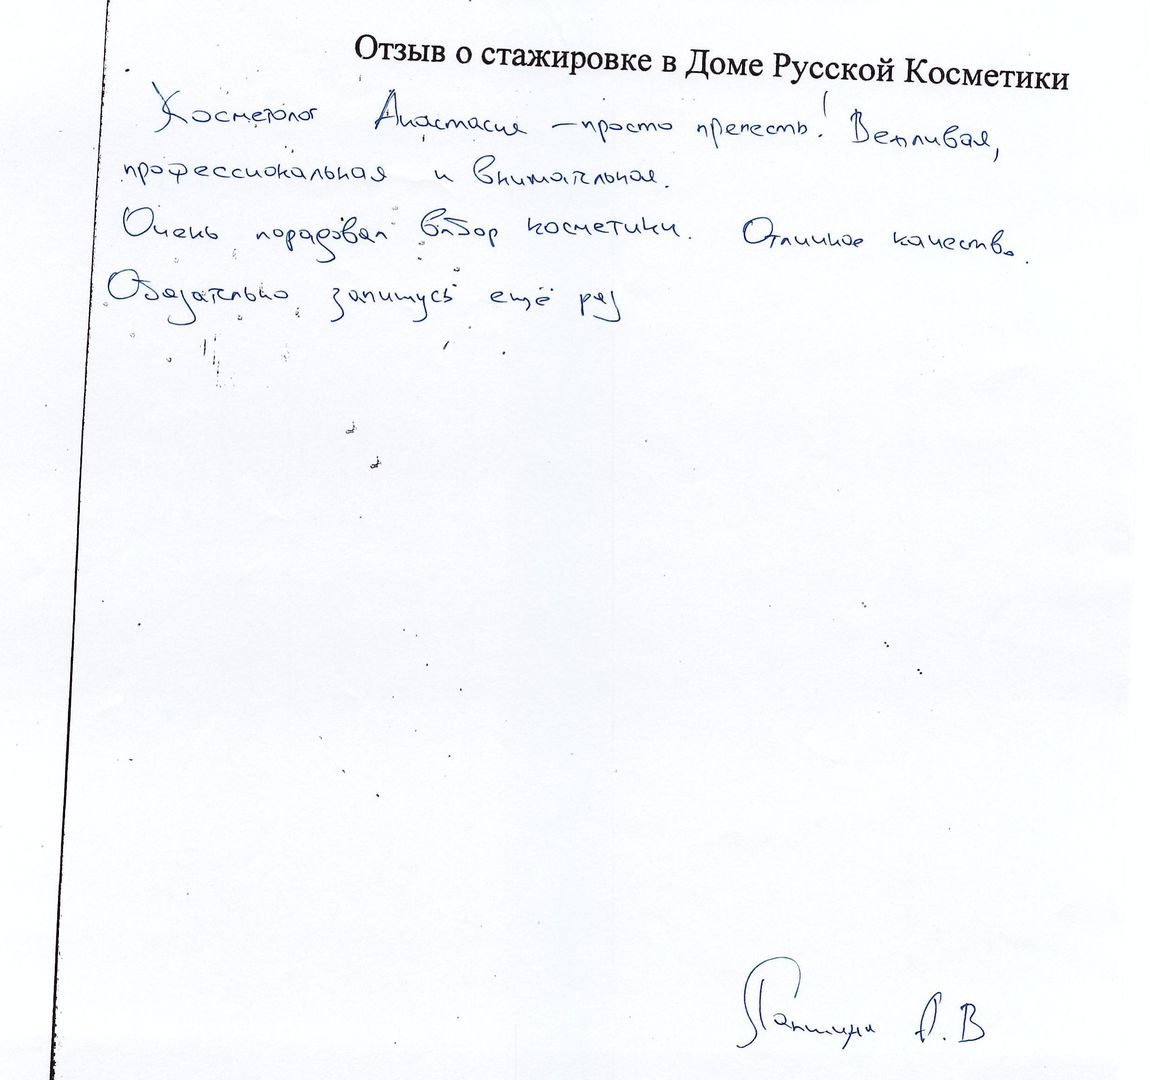 Отзыв о стажировке в Доме Русской Косметики
Косметолог Анастасия – просто прелесть! Вежливая,
профессиональная и внимательная.
Очень порадовал выбор косметики. Отличное качество.
Обязательно запишусь ещё раз
В